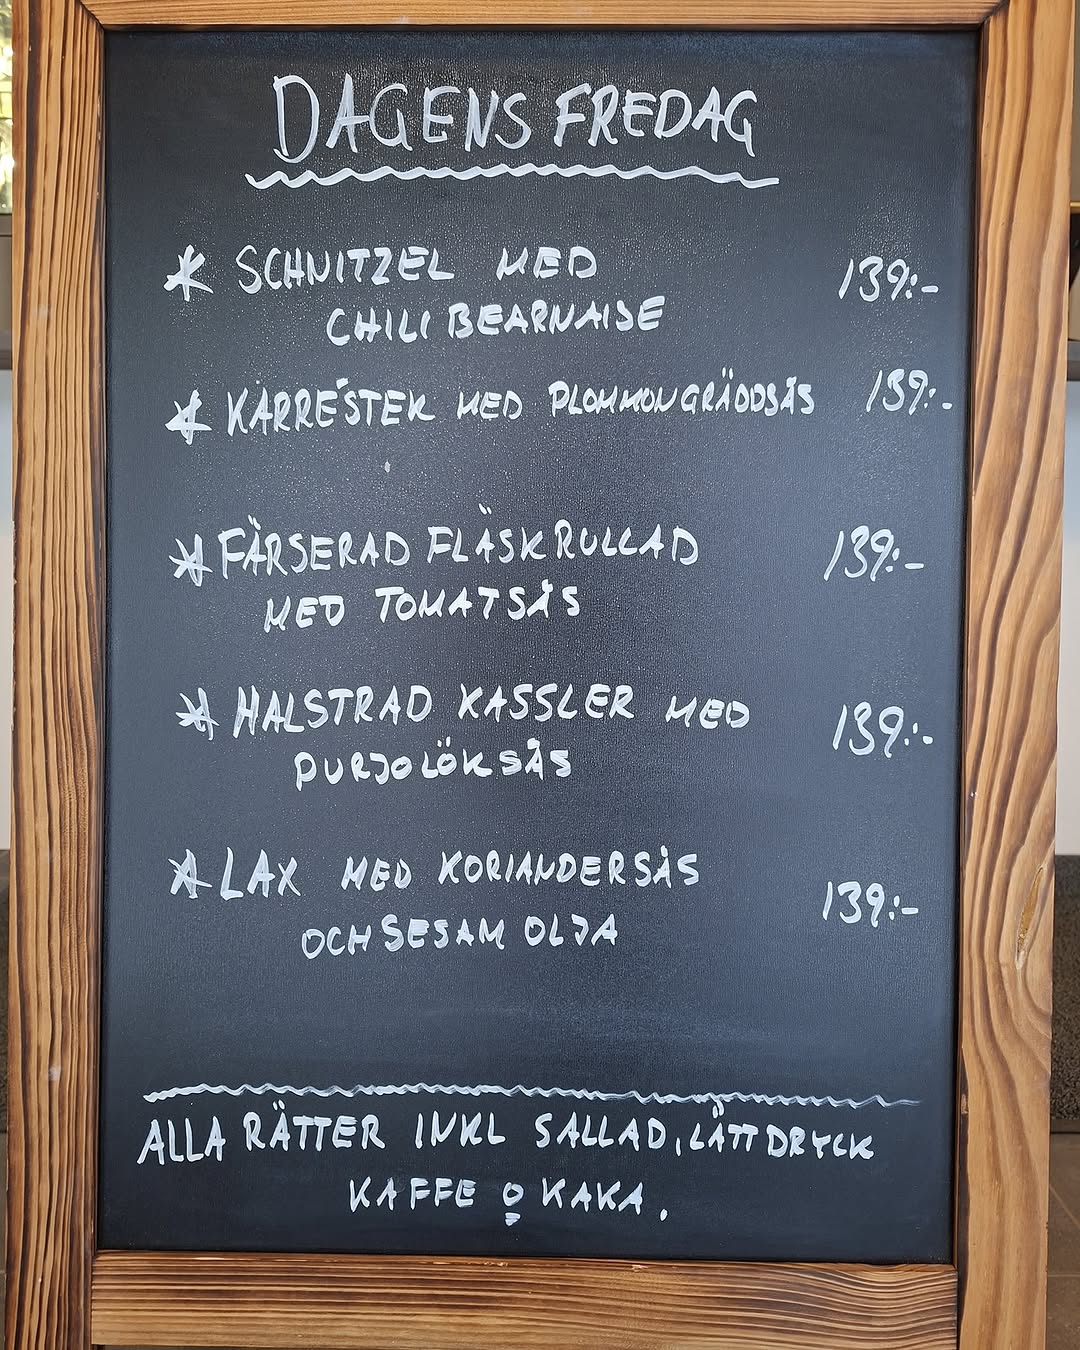 DAGENS FREDAG
* SCHNITZEL MED 139:-
CHILI BEARNAISE
* KARRÉSTEK MED PLOMMONGRÄDDSÅS 139:-
* FÄRSERAD FLÄSKRULLAD 139:-
MED TOMATSÅS
* HALSTRAD KASSLER MED 139:-
PURJOLÖKSÅS
* LAX MED KORIANDERSÅS 139:-
OCH SESAM OLJA
ALLA RÄTTER INKL SALLAD, LÄTTDRYCK
KAFFE o KAKA.